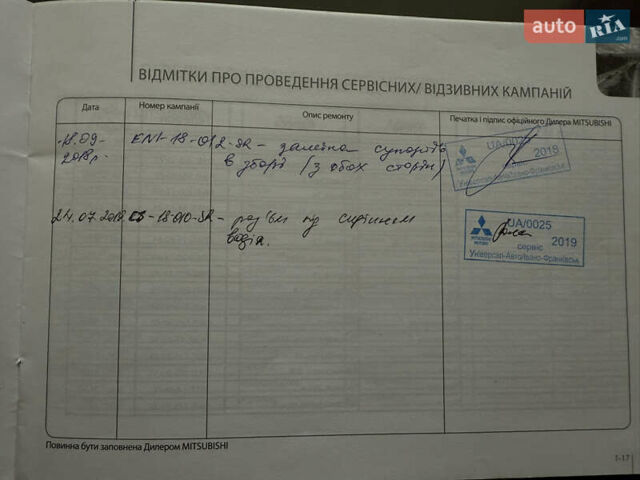 auto RIA.com
ВІДМІТКИ ПРО ПРОВЕДЕННЯ СЕРВІСНИХ/ ВІДЗИВНИХ КАМПАНІЙ
Дата Номер кампанії Опис ремонту Печатка і підпис офіційного Дилера MITSUBISHI
18.09- ENI-18-012-SR - заміна супортів
2018р. в зборі (з обох сторін)
UA/0025
2019
Універсал-Авто/Івано-Франківськ
24.07.2019 18-010-SR - роз'єм під сидінням
водія.
UA/0025
MITSUBISHI MOTORS
сервіс 2019
Універсал-Авто/Івано-Франківськ
Повинна бути заповнена Дилером MITSUBISHI
1-17